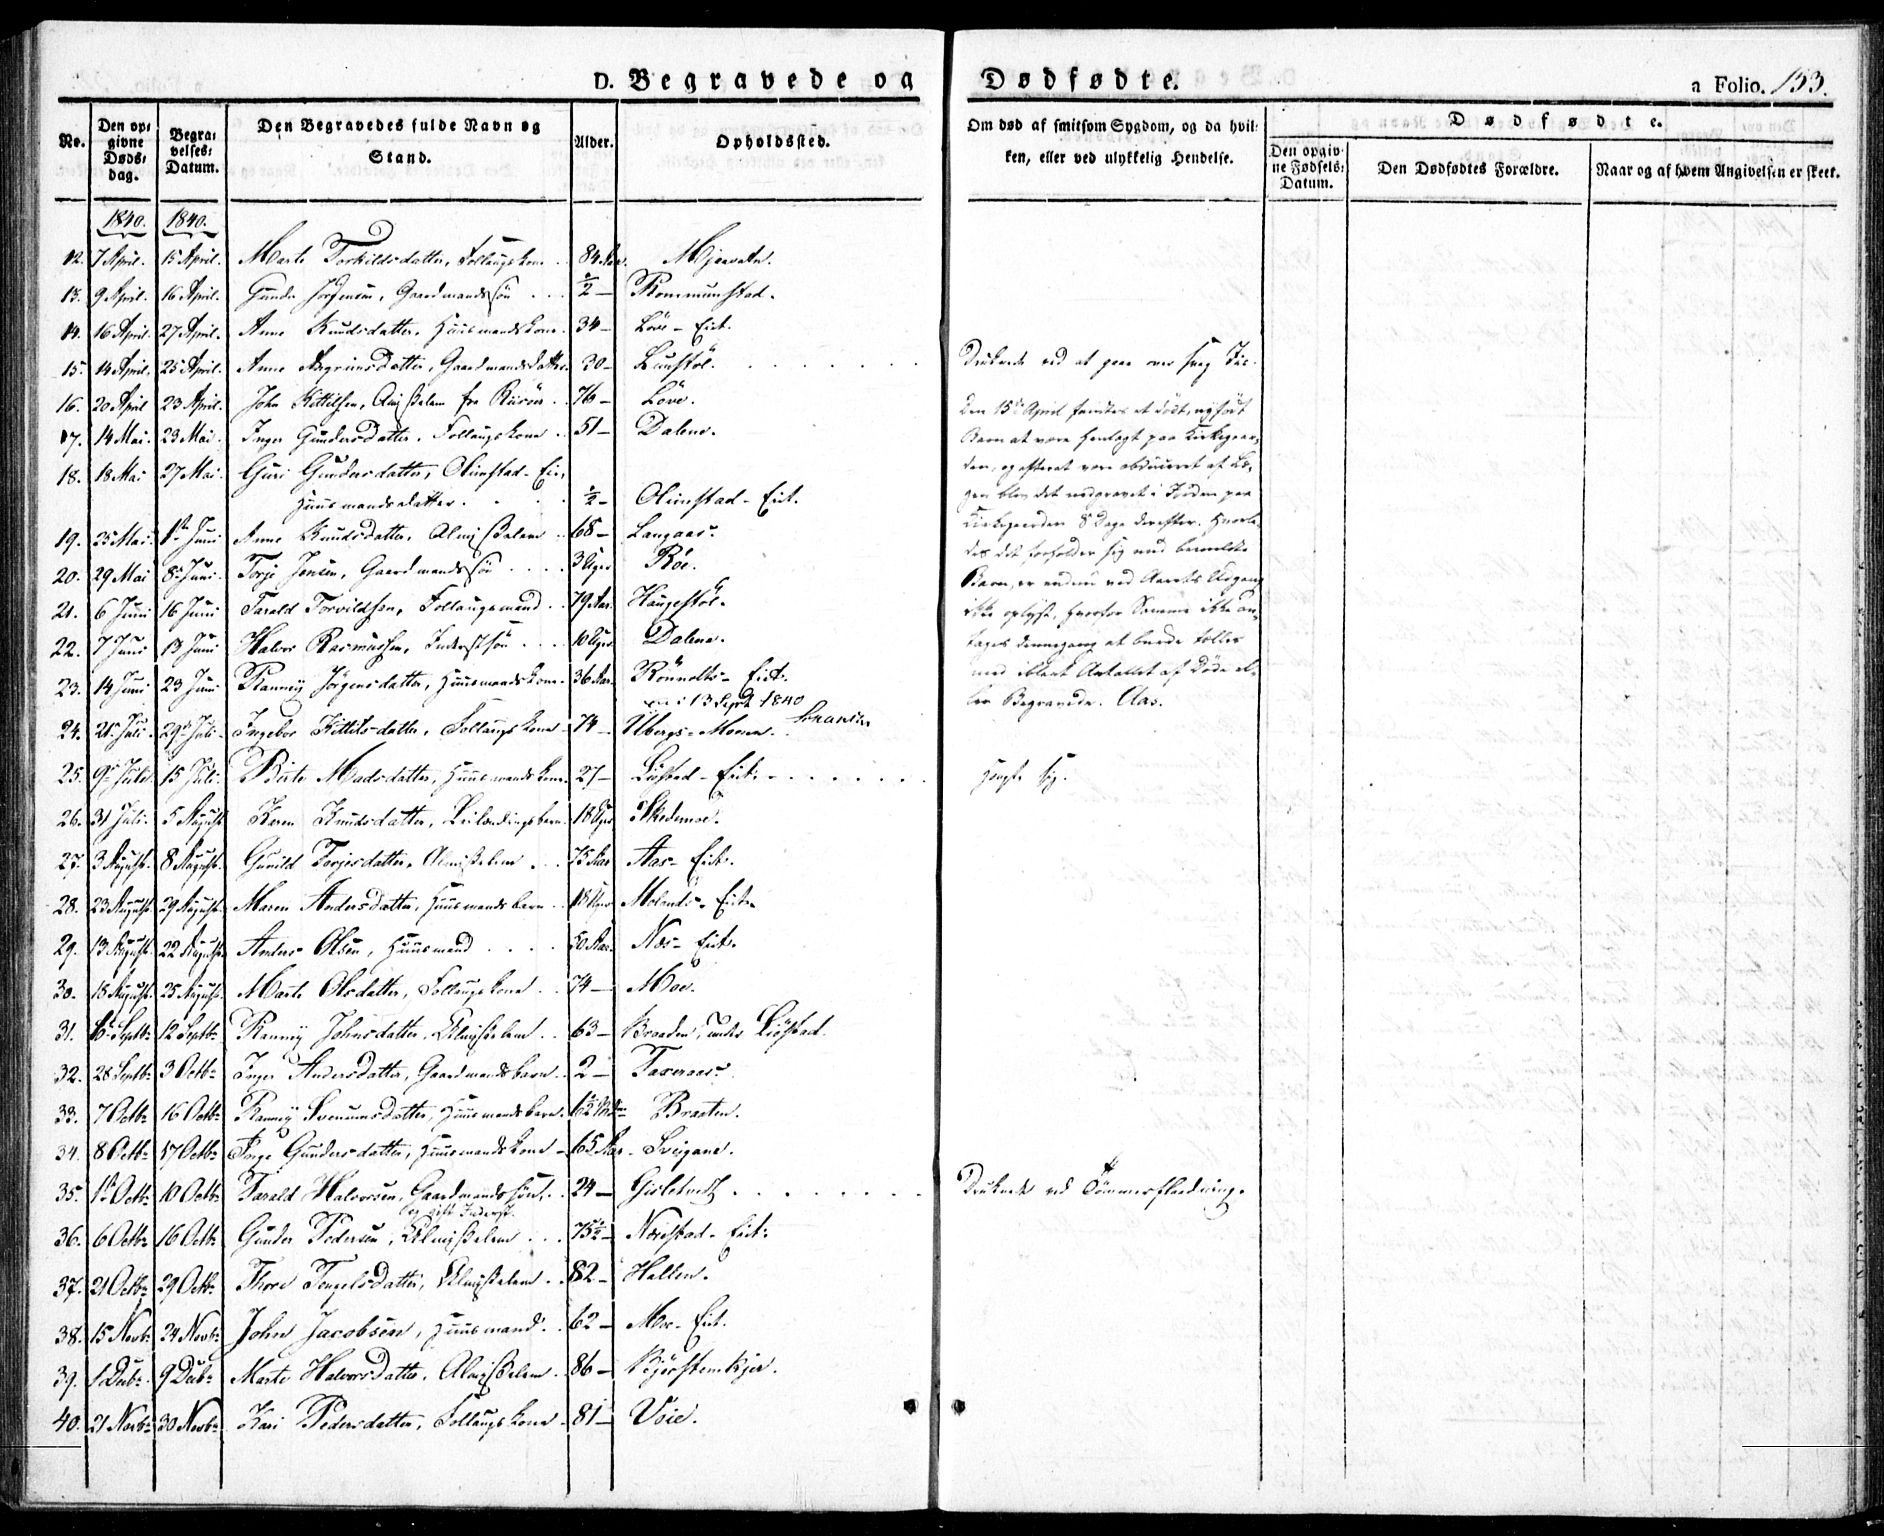 D. Begravede og Dødfødte. a Folio. 153.
No. Den opgivne Dødsdag. Begravelses-Datum. Den Begravedes fulde Navn og Stand. Alder. Opholdssted. Om død af smitsom Sygdom, og da hvilken, eller ved ulykkelig Hendelse. Dødfødte.
Den opgivne Fødsels-Datum. Den Dødfødtes Forældre. Naar og af hvem Angivelsen er skeet.
1840. 1840.
12. 7 April. 15 April. Marte Torkildsdatter, Follaugskone 84 Aar. Mjaavatn.
13. 9 April. 16 April. Gunder Jørgensen, Gaardmandssøn ½ — Rommunstad.
14. 16 April. 27 April. Anne Knudsdatter, Huusmandskone. 34 — Löve - Eiet.
15. 14 April. 25 April. Anne Asgrimsdatter, Gaardmandsdatter 30 — Lunstöl. Druknede ved at gaae over svag Iis.
16. 20 April 23 April. John Kittilsen, Almisselem fra Riisöer. 76 — Löve.
17. 14 Mai. 23 Mai. Inger Gundersdatter, Follaugskone 51 — Dalene.
18. 18 Mai 27 Mai. Guri Gundersdatter, Olimstad-Eie,
Huusmandsdatter. ½ — Olimstad - Eiet.
19. 25 Mai. 1ste Juni Anne Knudsdatter, Almisselem 68 — Langaas.
20. 29 Mai 8 Juni. Torje Jensen, Gaardmandssøn 3 Uger Röe.
21. 6 Juni 16 Juni Tarald Torvildsen, Follaugsmand 79 Aar. Haugestöl.
22. 7 Juni 13 Juni Halvor Rasmussen, Inderstsön 10 Uger Dalene.
23. 14 Juni 23 Juni Ranneij Jörgensdatter, Huusmandskone 36 Aar. Rönnolts - Eiet.
13 Sept 1840
24. 21 Juli. 29 Juli. Ingebor Kittilsdatter, Follaugskone 74 — Ubergs-Moen.
Den 15de April fandtes et dödt, nyfödt
Barn at være henlagt paa Kirkegaar-
den, og efterat være obduceret af Læ-
gen blev det nedgravet i Jorden paa
Kirkegaarden 8 Dage derefter. Hvorle-
des det forholder sig med bemeldte
Barn, er endnu ved Aarets Udgang
ikke oplyst, hvorfor Samme ikke an-
tages dennegang at burde tælles
med iblant Antallet af Döde el-
ler Begravede. Aas.
25. 9 Juli. 15 Juli. Birte Madsdatter, Huusmandskone. 27 — Liøstad - Eiet. Hængte sig.
26. 31 Juli. 5 August Karen Knudsdatter, Leilændingsbarn. 18 Uger Skedsmoe.
27. 3 August. 8 August. Gunild Torjesdatter, Almisselem 75 Aar Aas - Eiet.
28. 23 August. 29 August. Maren Andersdatter, Huusmandsbarn 18 Uger Molands - Eiet.
29. 13 August. 22 August. Anders Olsen, Huusmand 50 Aar. Næs - Eiet.
30. 18 August. 25 August. Marte Olsdatter, Follaugskone 74 — Moe.
31. 6 Septbr 12 Septbr Ranneij Johnsdatter, Almisselem 63 — Braaden, under Liöstad.
32. 28 Septbr 3 Octbr Inger Andersdatter, Gaardmandsbarn 2 — Taxeraas.
33. 7 Octbr 16 Octbr Ranneij Svenumsdatter, Huusmandsbarn. Braaten.
34. 8 Octbr 17 Octbr Inge Gundersdatter, Huusmandskone 65 Aar Sveigane.
35. 1ste Octbr 10 Octbr Tarald Halvorsen, Gaardmandssøn, 24 — Gisletvedt Druknede ved Tømmerflødning.
og gift Inderst.
36. 6 Octbr 16 Octbr Gunder Pedersen, Almisselem 75½ — Næristad - Eiet.
37. 21 Octbr 29 Octbr Thore Tengelsdatter, Almisselem 82 — Hallen.
38. 15 Novbr 24 Novbr John Jacobsen, Huusmand 62 — Moe - Eiet.
39. 1 Decbr 9 Decbr Marte Halvorsdatter, Almisselem 86 — Björstemkjer.
40. 21 Novbr 30 Novbr Kari Pedersdatter, Follaugskone 81 — Vöie.